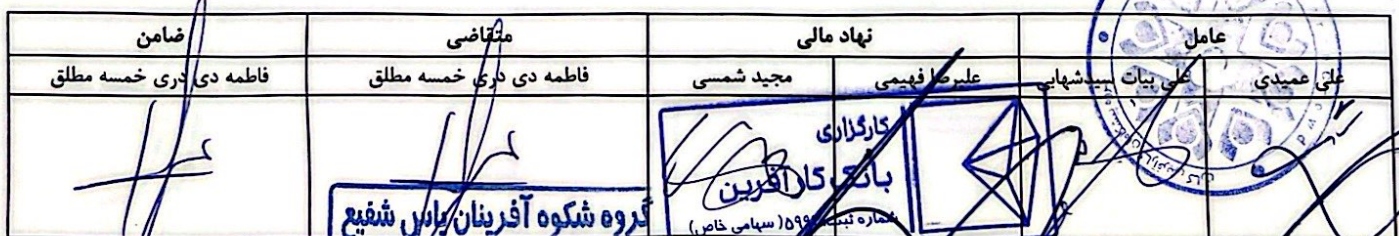 عامل نهاد مالی متقاضی ضامن
علی عمیدی علی بیات سیدشهابی علیرضا فهیمی مجید شمسی فاطمه دی دری خمسه مطلق فاطمه دی دری خمسه مطلق
کارگزاری
بانک کارآفرین
شماره ثبت (سهامی خاص)
گروه شکوه آفرینان یاس شفیع